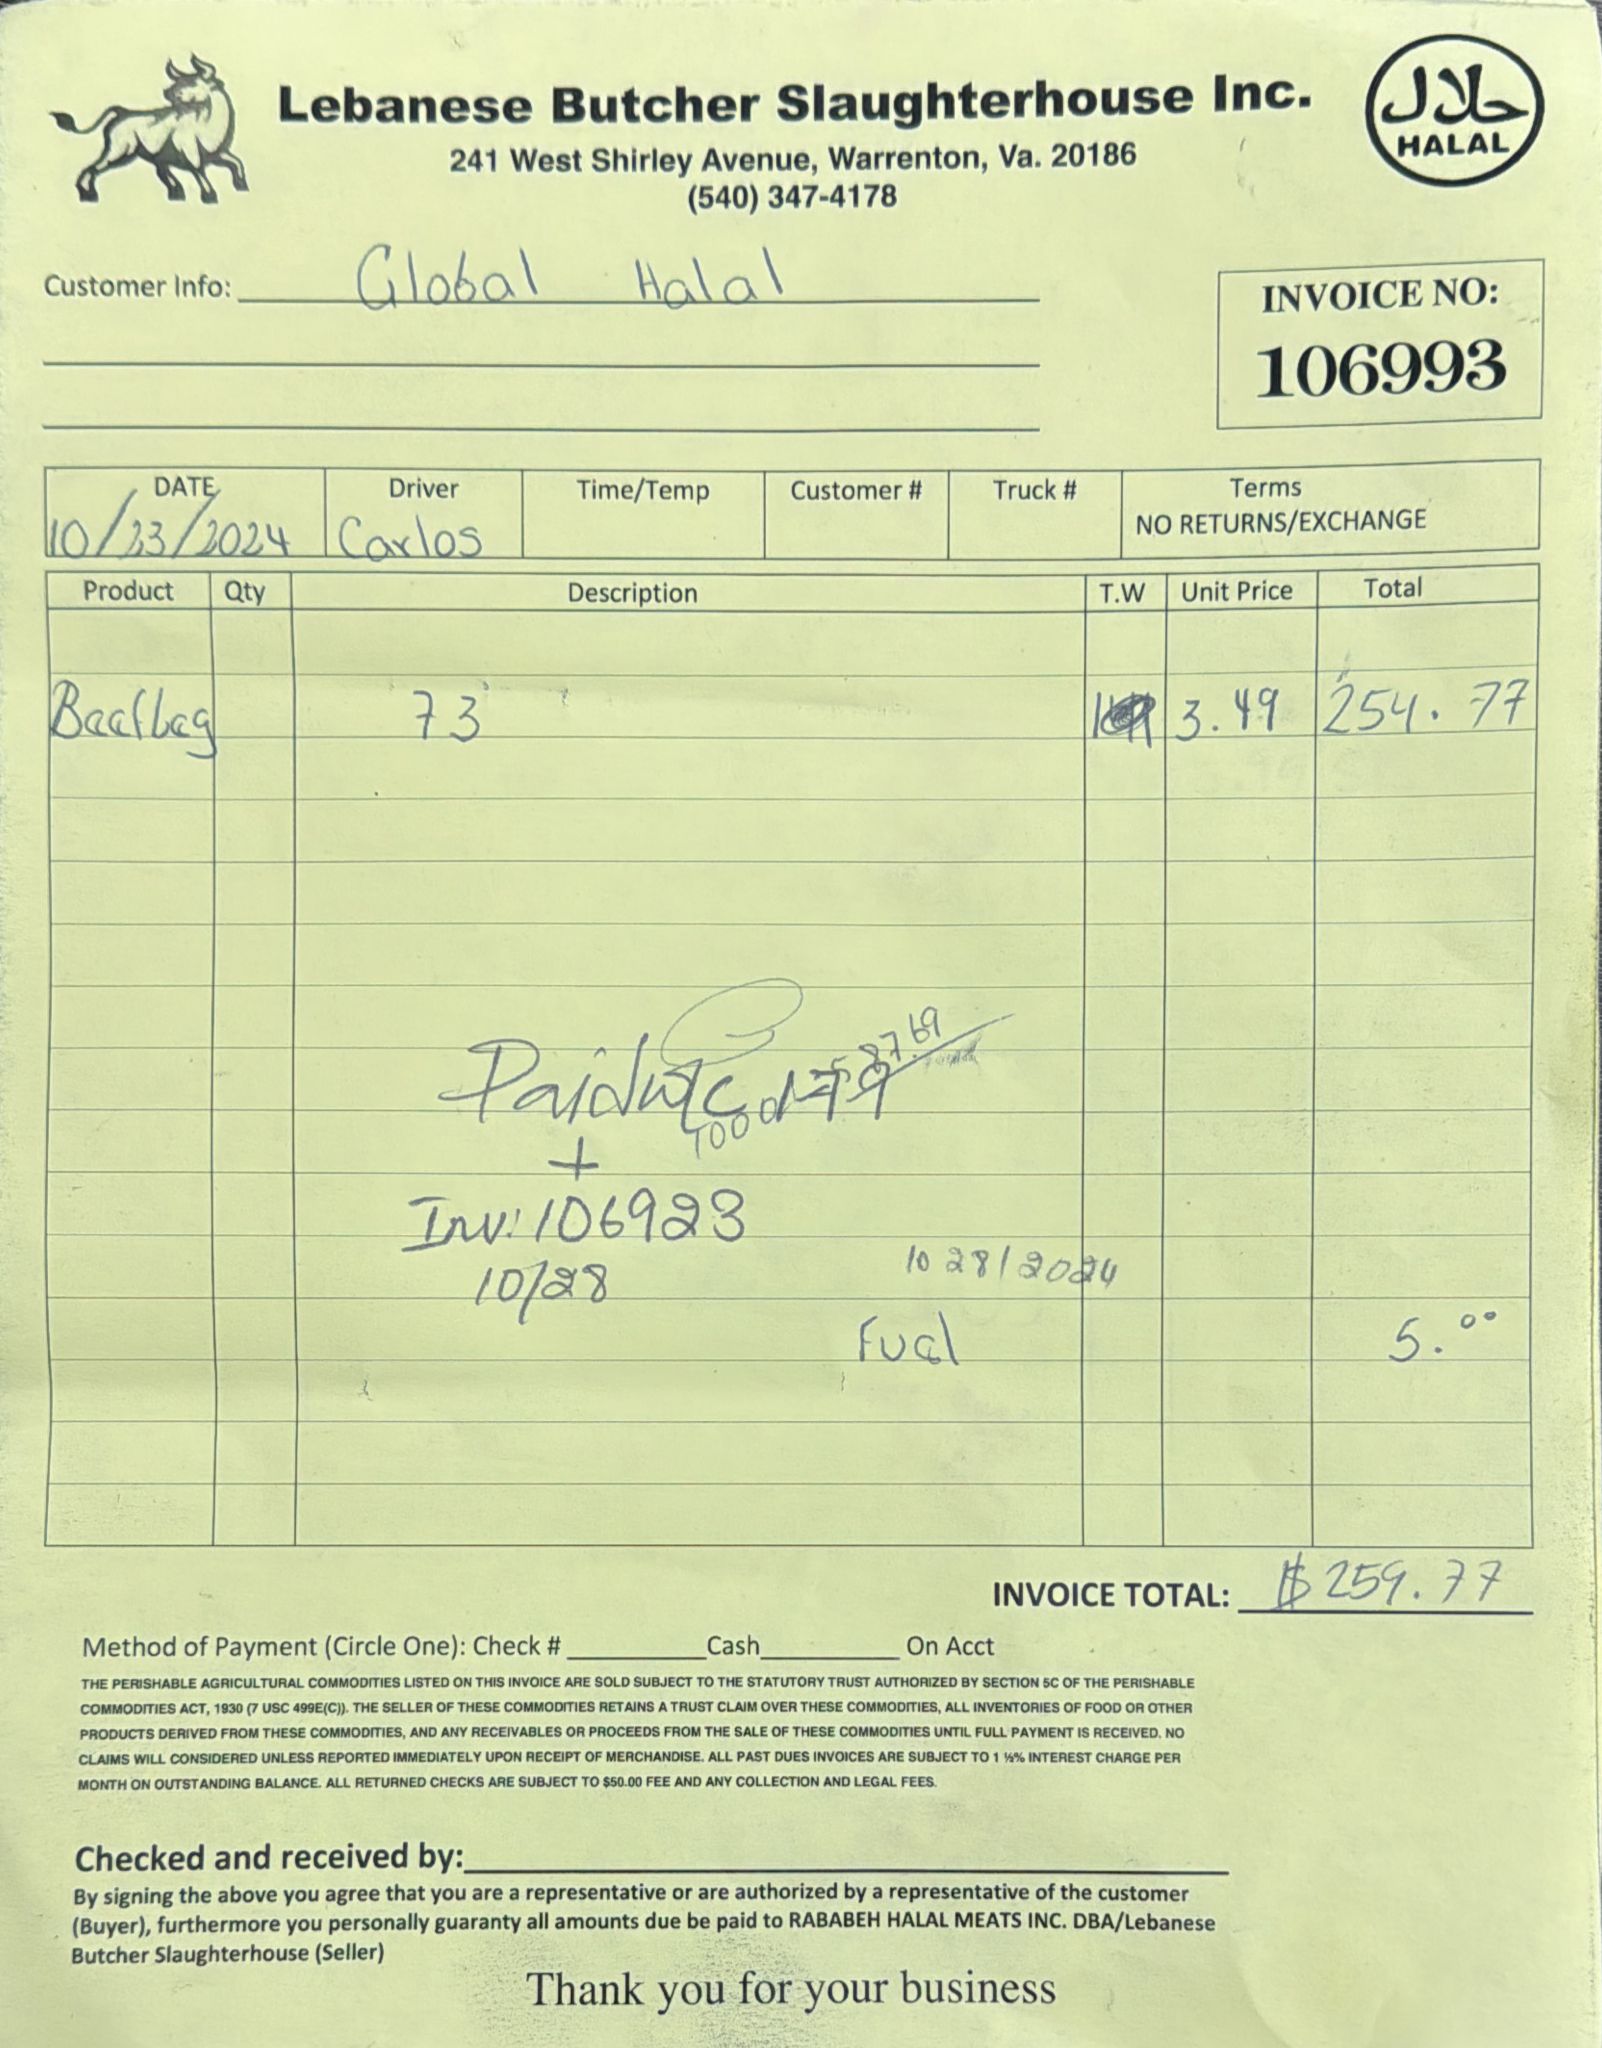 Lebanese Butcher Slaughterhouse Inc.
حلال
HALAL
241 West Shirley Avenue, Warrenton, Va. 20186
(540) 347-4178
Customer Info: Global Halal
INVOICE NO:
106993
DATE Driver Time/Temp Customer # Truck # Terms
10/23/2024 Carlos NO RETURNS/EXCHANGE
Product Qty Description T.W Unit Price Total
73 3.49 254.77
87.69
Paid
+
Inv: 106923
10/28
10 28/2024
Fuel 5.00
INVOICE TOTAL: $259.77
Method of Payment (Circle One): Check # Cash On Acct
THE PERISHABLE AGRICULTURAL COMMODITIES LISTED ON THIS INVOICE ARE SOLD SUBJECT TO THE STATUTORY TRUST AUTHORIZED BY SECTION 5C OF THE PERISHABLE
COMMODITIES ACT, 1930 (7 USC 499E(C)). THE SELLER OF THESE COMMODITIES RETAINS A TRUST CLAIM OVER THESE COMMODITIES, ALL INVENTORIES OF FOOD OR OTHER
PRODUCTS DERIVED FROM THESE COMMODITIES, AND ANY RECEIVABLES OR PROCEEDS FROM THE SALE OF THESE COMMODITIES UNTIL FULL PAYMENT IS RECEIVED. NO
CLAIMS WILL CONSIDERED UNLESS REPORTED IMMEDIATELY UPON RECEIPT OF MERCHANDISE. ALL PAST DUES INVOICES ARE SUBJECT TO 1 ½% INTEREST CHARGE PER
MONTH ON OUTSTANDING BALANCE. ALL RETURNED CHECKS ARE SUBJECT TO $50.00 FEE AND ANY COLLECTION AND LEGAL FEES.
Checked and received by:
By signing the above you agree that you are a representative or are authorized by a representative of the customer
(Buyer), furthermore you personally guaranty all amounts due be paid to RABABEH HALAL MEATS INC. DBA/Lebanese
Butcher Slaughterhouse (Seller)
Thank you for your business